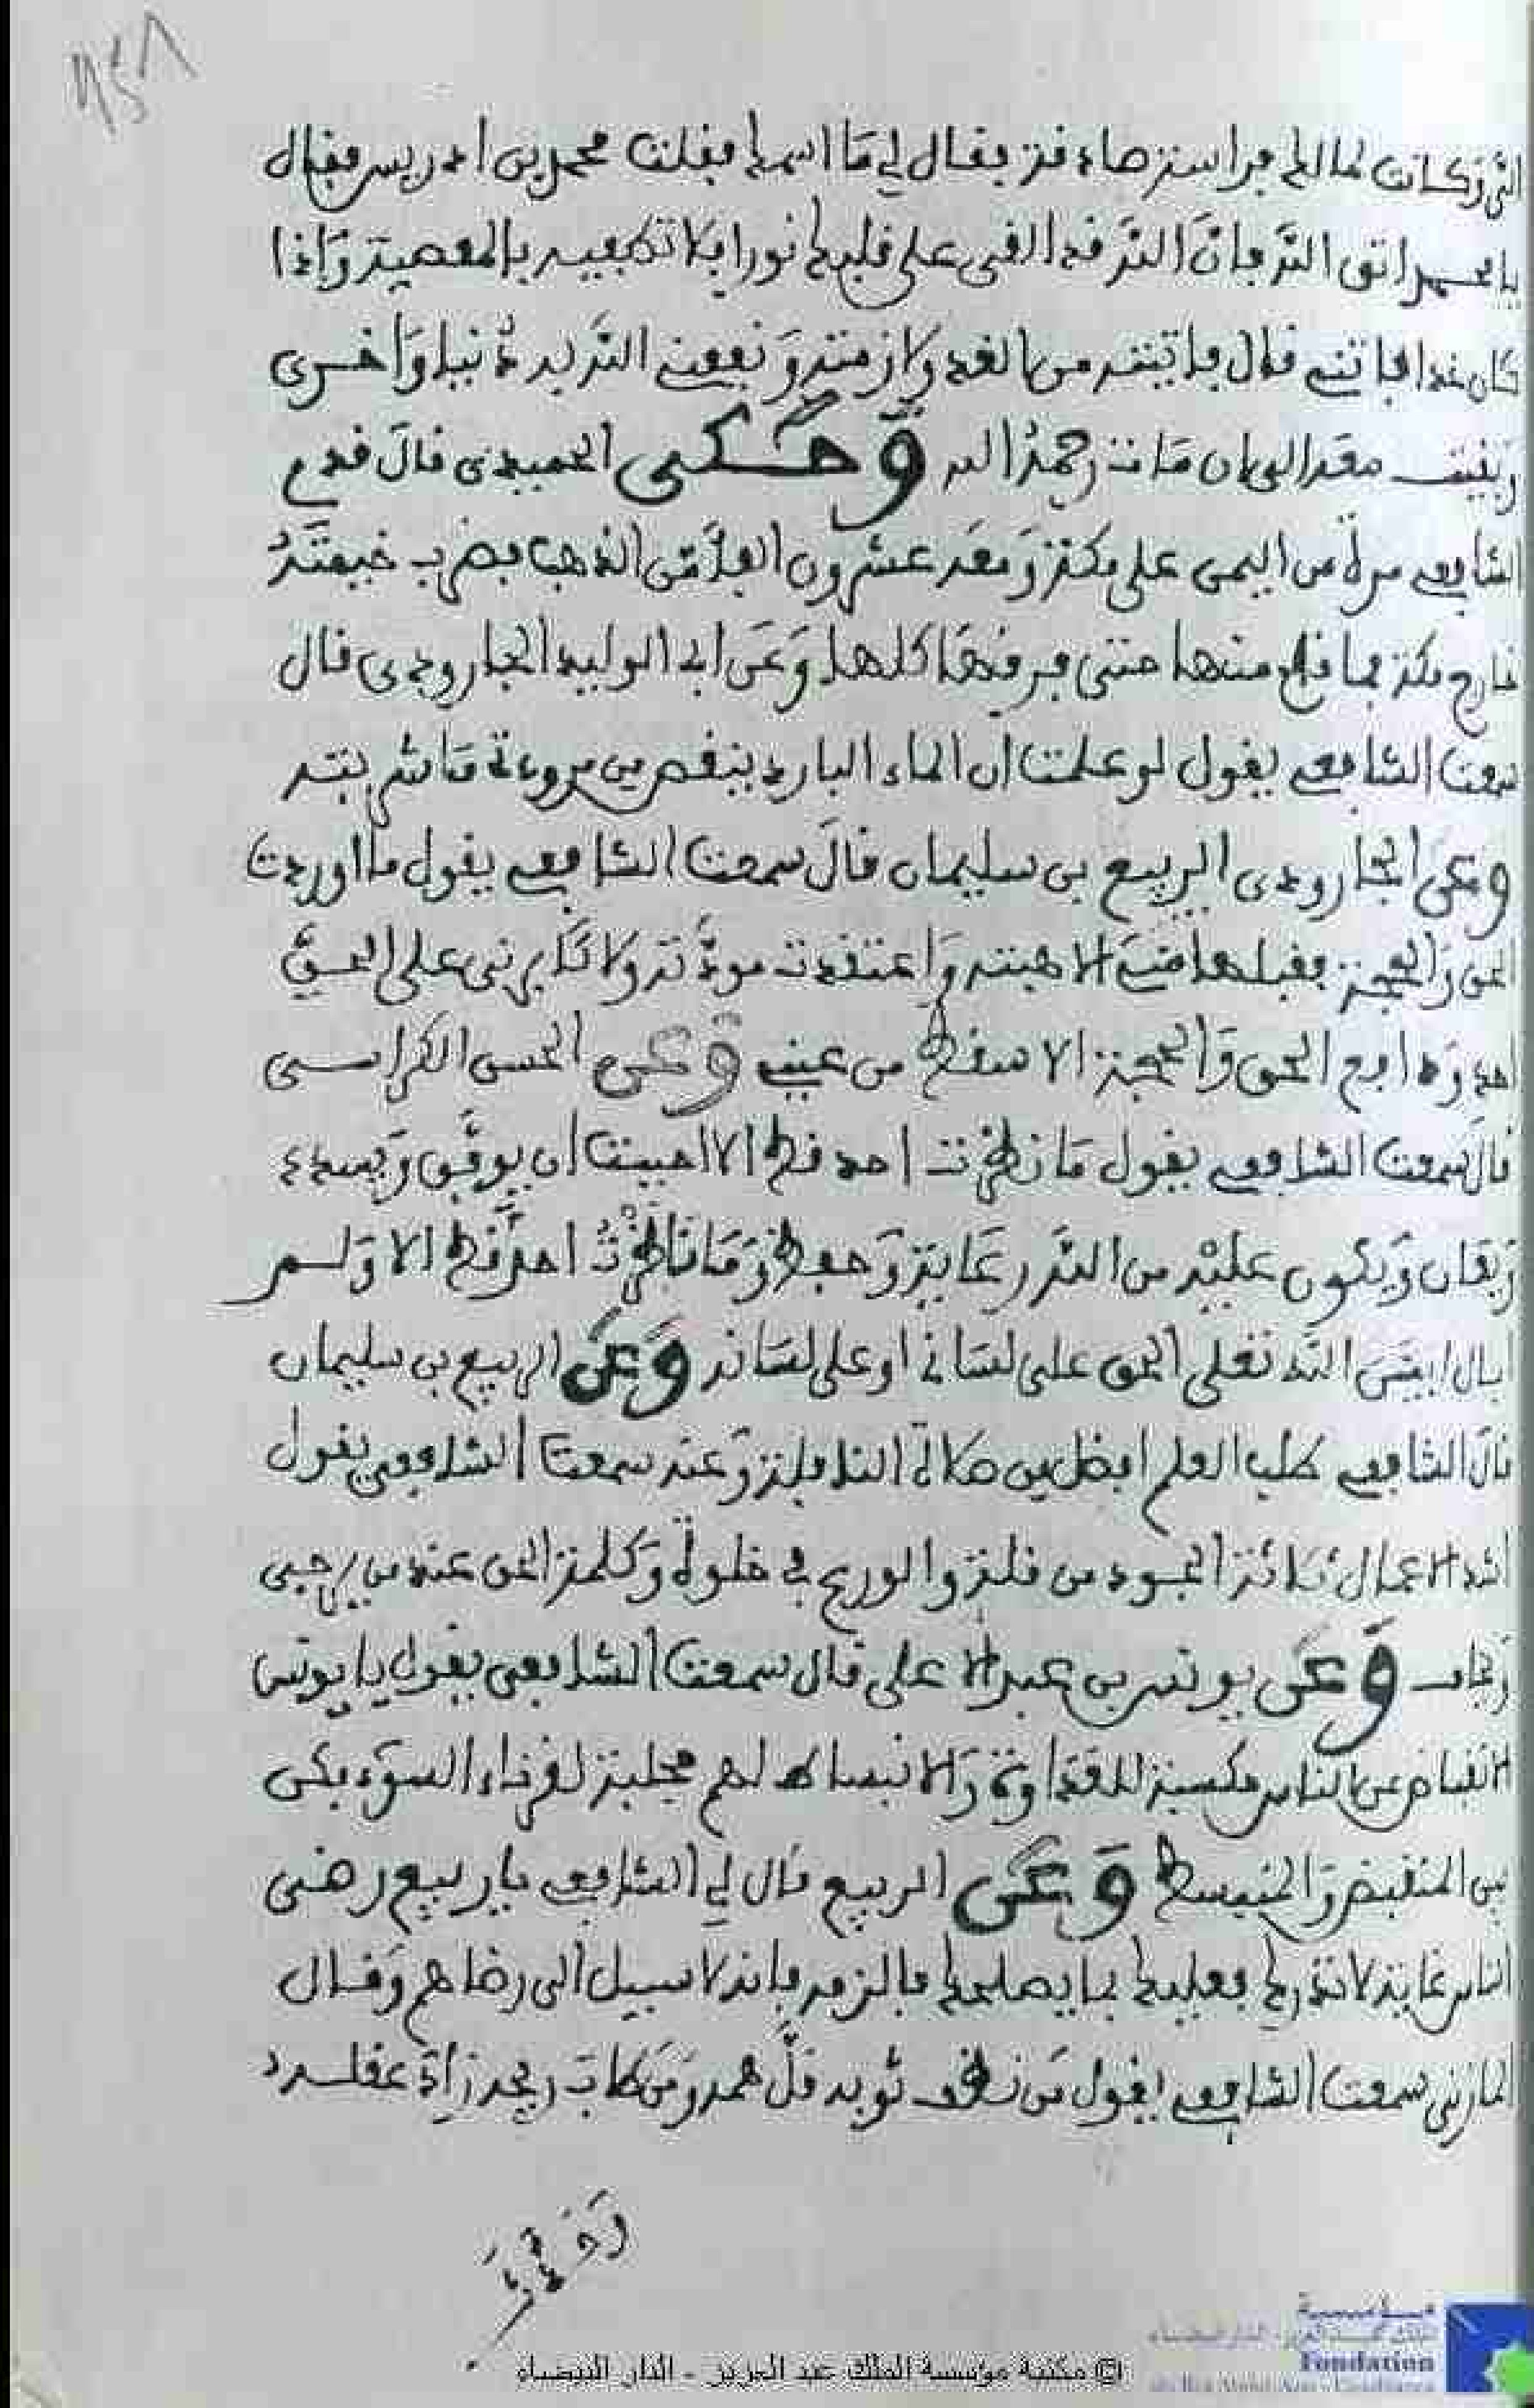 وكانت لمالك فراسة صادقة فقال لي ما اسمك فقلت محمد بن ادريس فقال
يا محمد اتق الله فان الله قد القى على قلبك نورا فلا تطفيه بالمعصية واذا
كان غدا فاتني قال فاتيته من الغد ولازمته ونفعني الله به دنيا واخرى
وبقيت معه الى ان مات رحمه الله وحكى الحميدي قال قدم
الشافعي مرة من اليمن على مكة ومعه عشرون الفا من الذهب فضرب خيمته
خارج مكة فما قام منها حتى فرقها كلها وعن ابي الوليد الجارودي قال
سمعت الشافعي يقول لو علمت ان الماء البارد ينقص من مروءة ما شربته
وعن الجارودي الربيع بن سليمان قال سمعت الشافعي يقول ما اوردت
الحق والحجة فقبلها مني الا هبته واعتقدت مودته ولا كابرني على الحق
احد ودافع الحق والحجة الا سقط من عيني وعن الحسن الكرابسي
قال سمعت الشافعي يقول ما ناظرت احد قط الا احببت ان يوفق ويسدد
ويعان ويكون عليه من الله رعاية وحفظ وما ناظرت احد قط الا ولم
ابال ابيّن الله تعلى الحق على لساني او على لسانه وعن الربيع بن سليمان
قال الشافعي طلب العلم افضل من صلاة النافلة وعنه سمعت الشافعي يقول
اشد الاعمال ثلاثة الجود من قلة والورع في خلوة وكلمة الحق عند من يرجى
ويخاف وعن يونس بن عبد الاعلى قال سمعت الشافعي يقول يا يونس
الانقباض عن الناس مكسبة للعداوة والانبساط لهم مجلبة لقرناء السوء فكن
بين المنقبض والمنبسط وعن الربيع قال لي الشافعي يا ربيع رضى
الناس غاية لا تدرك فعليك بما يصلحك فالزمه فانه لا سبيل الى رضاهم وقال
المازني سمعت الشافعي يقول من نظف ثوبه قل همه ومن طاب ريحه زاد عقله
© مكتبة مؤسسة الملك عبد العزيز - الدار البيضاء
مؤسسة
الملك عبد العزيز - الدار البيضاء
Fondation